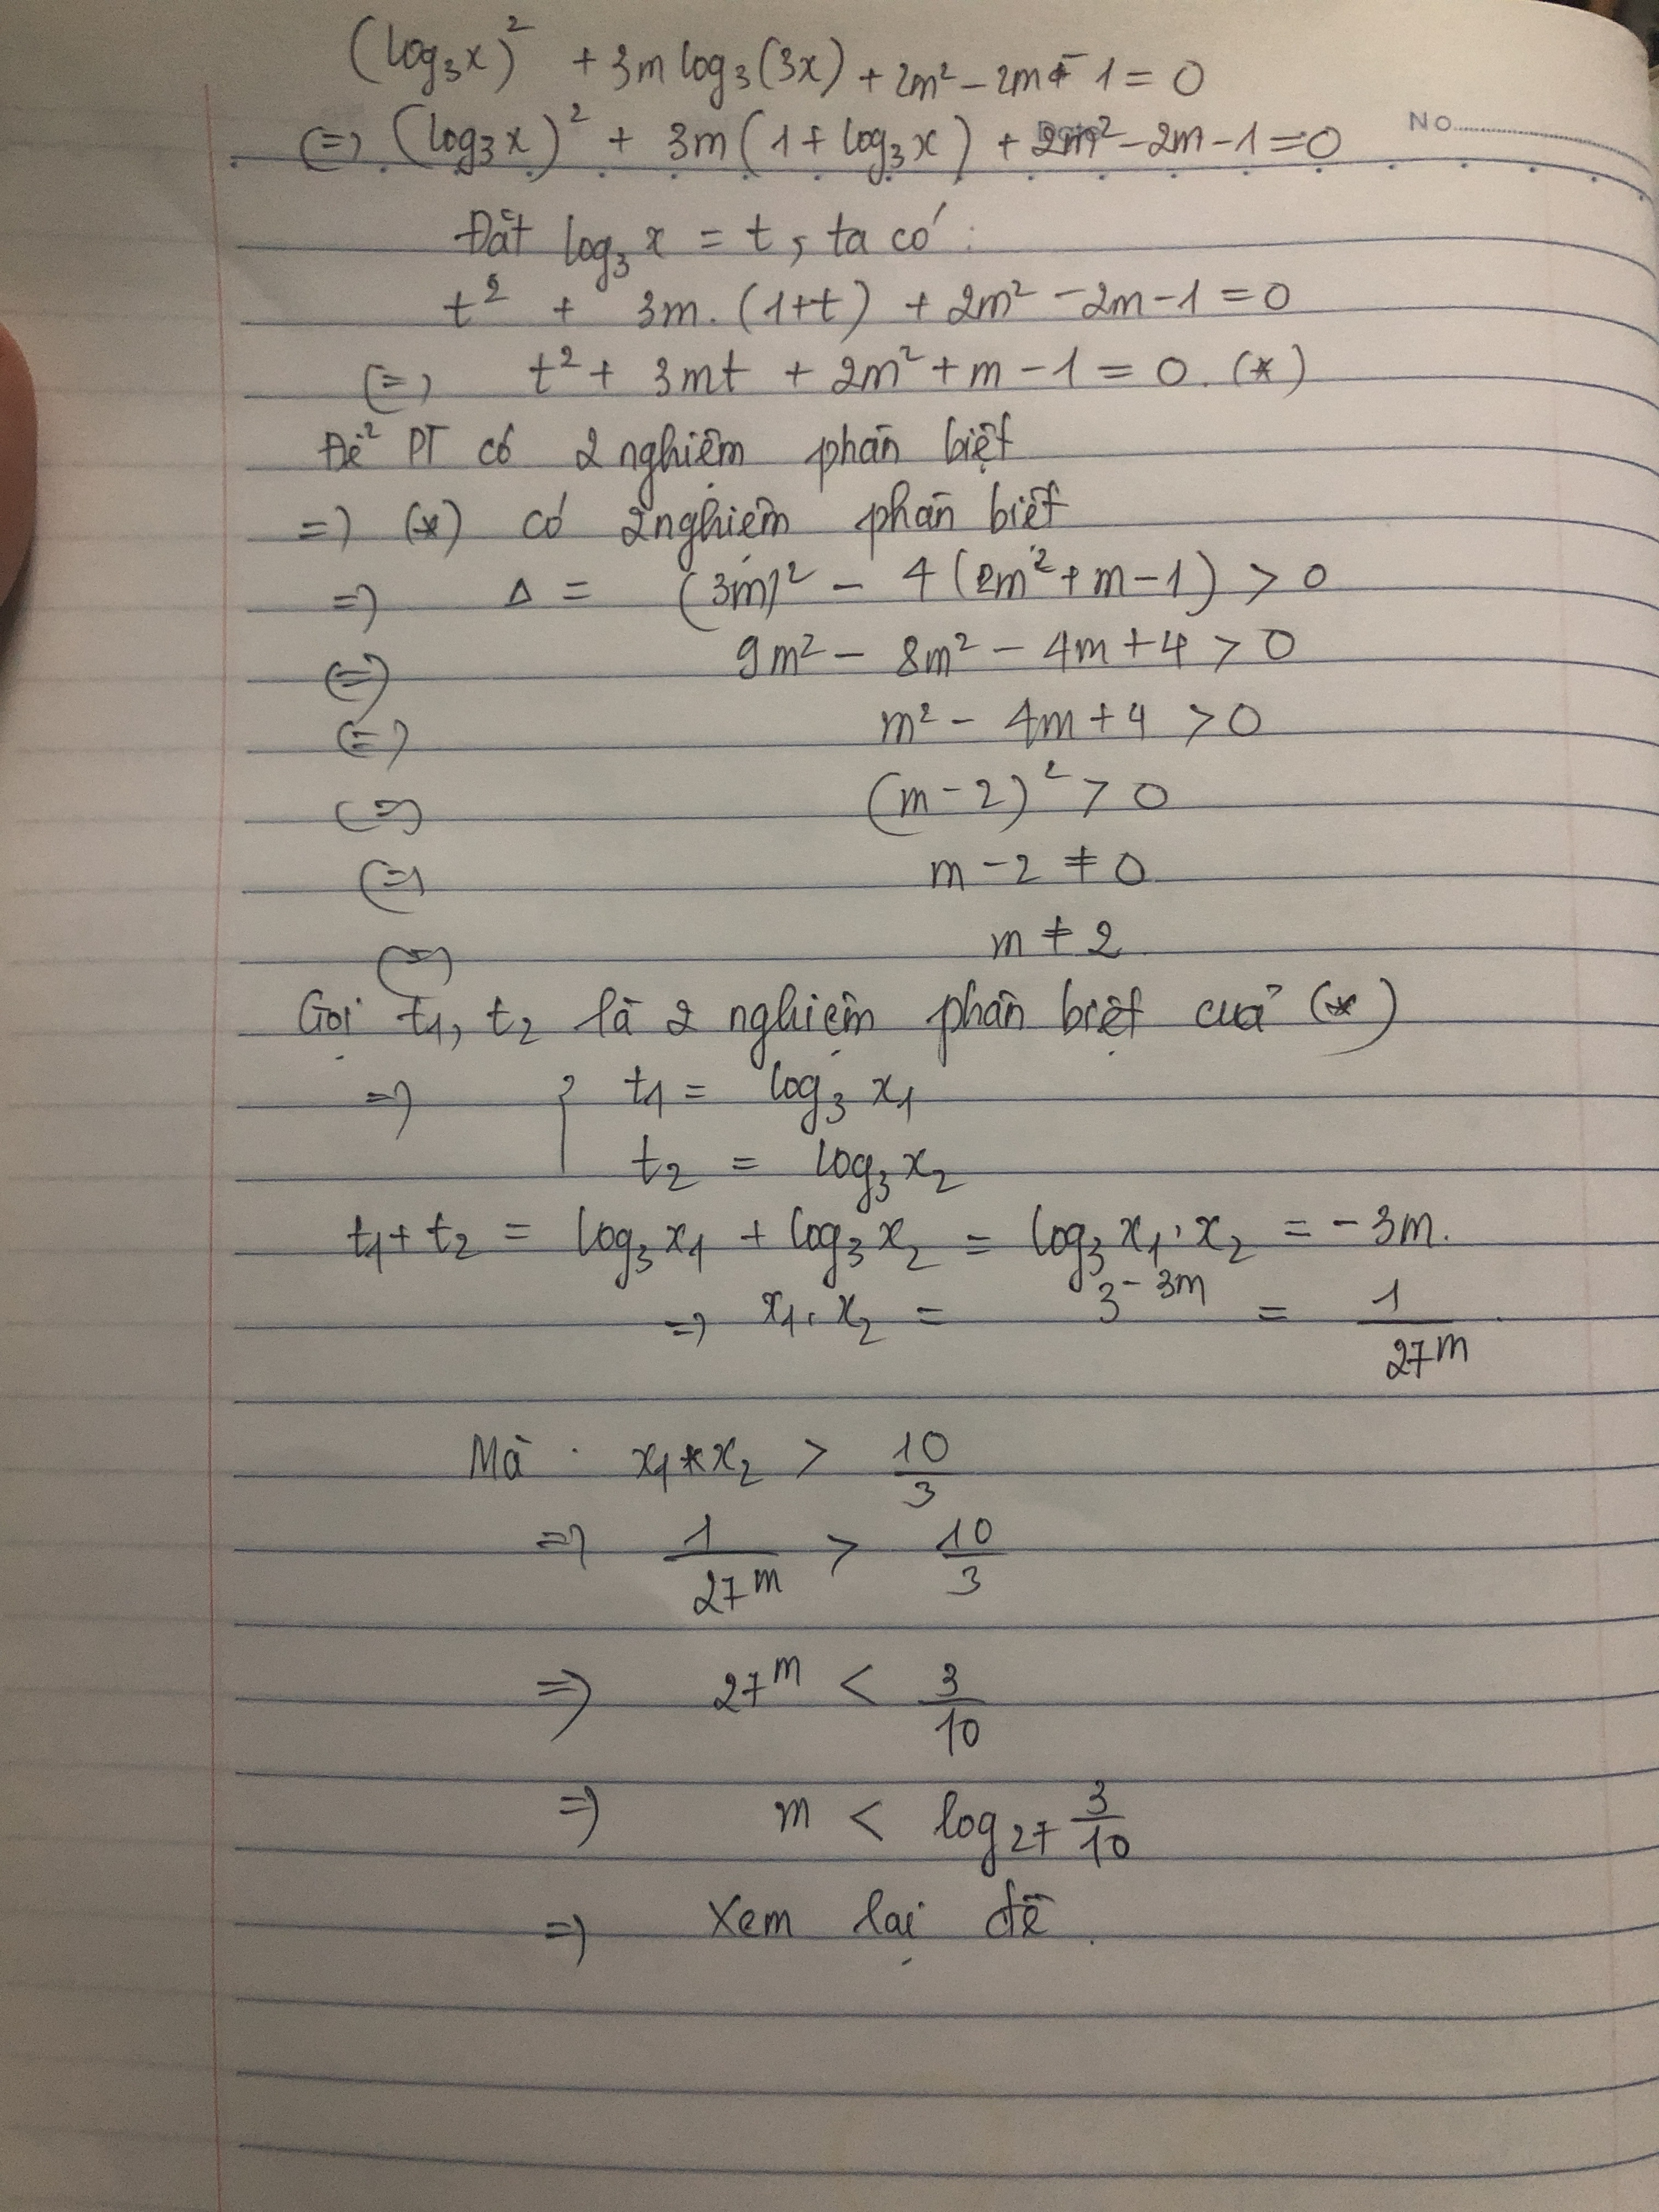 (log₃x)² + 3m log₃(3x) + 2m² - 2m - 1 = 0
No
(=) (log₃x)² + 3m(1 + log₃x) + 2m² - 2m - 1 = 0
Đặt log₃x = t, ta có:
t² + 3m.(1+t) + 2m² - 2m - 1 = 0
(=) t² + 3mt + 2m² + m - 1 = 0. (*)
Để PT có 2 nghiệm phân biệt
=) (*) có 2 nghiệm phân biệt
=) Δ = (3m)² - 4(2m² + m - 1) > 0
(=) 9m² - 8m² - 4m + 4 > 0
(=) m² - 4m + 4 > 0
(=) (m - 2)² > 0
(=) m - 2 ≠ 0
(=) m ≠ 2
Gọi t₁, t₂ là 2 nghiệm phân biệt của (*)
=) { t₁ = log₃x₁
t₂ = log₃x₂
t₁ + t₂ = log₃x₁ + log₃x₂ = log₃x₁.x₂ = -3m.
=) x₁.x₂ = 3^(-3m) = 1/27^m.
Mà x₁*x₂ > 10/3
=) 1/27^m > 10/3
=) 27^m < 3/10
=) m < log₂₇ 3/10
=) Xem lại đề.